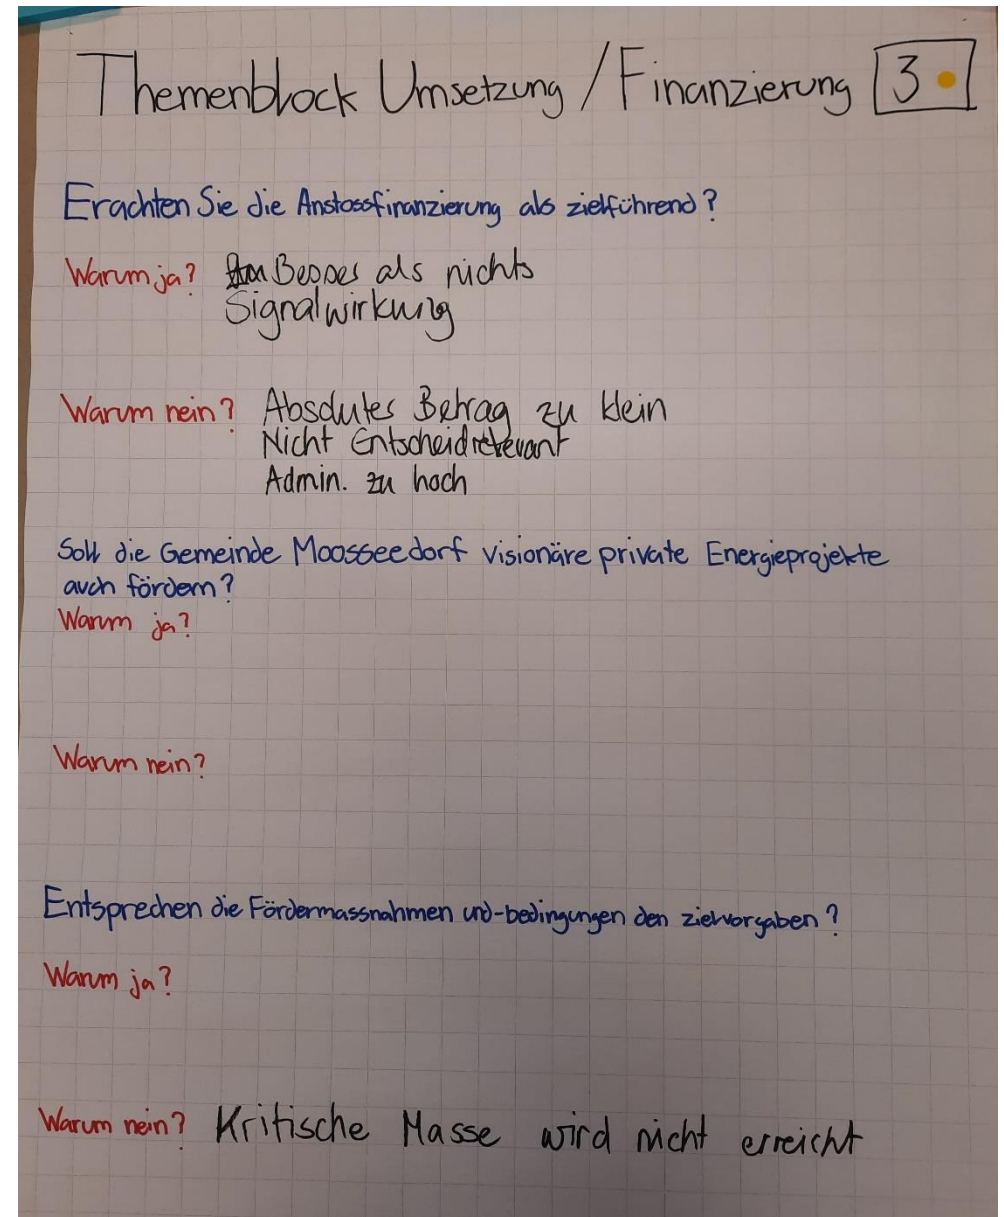 Themenblock Umsetzung / Finanzierung 3
Erachten Sie die Anstossfinanzierung als zielführend?
Warum ja? Besser als nichts
Signalwirkung
Warum nein? Absolutes Betrag zu klein
Nicht Entscheidrelevant
Admin. zu hoch
Soll die Gemeinde Moosseedorf visionäre private Energieprojekte
auch fördern?
Warum ja?
Warum nein?
Entsprechen die Fördermassnahmen und -bedingungen den zielvorgaben?
Warum ja?
Warum nein? Kritische Masse wird nicht erreicht